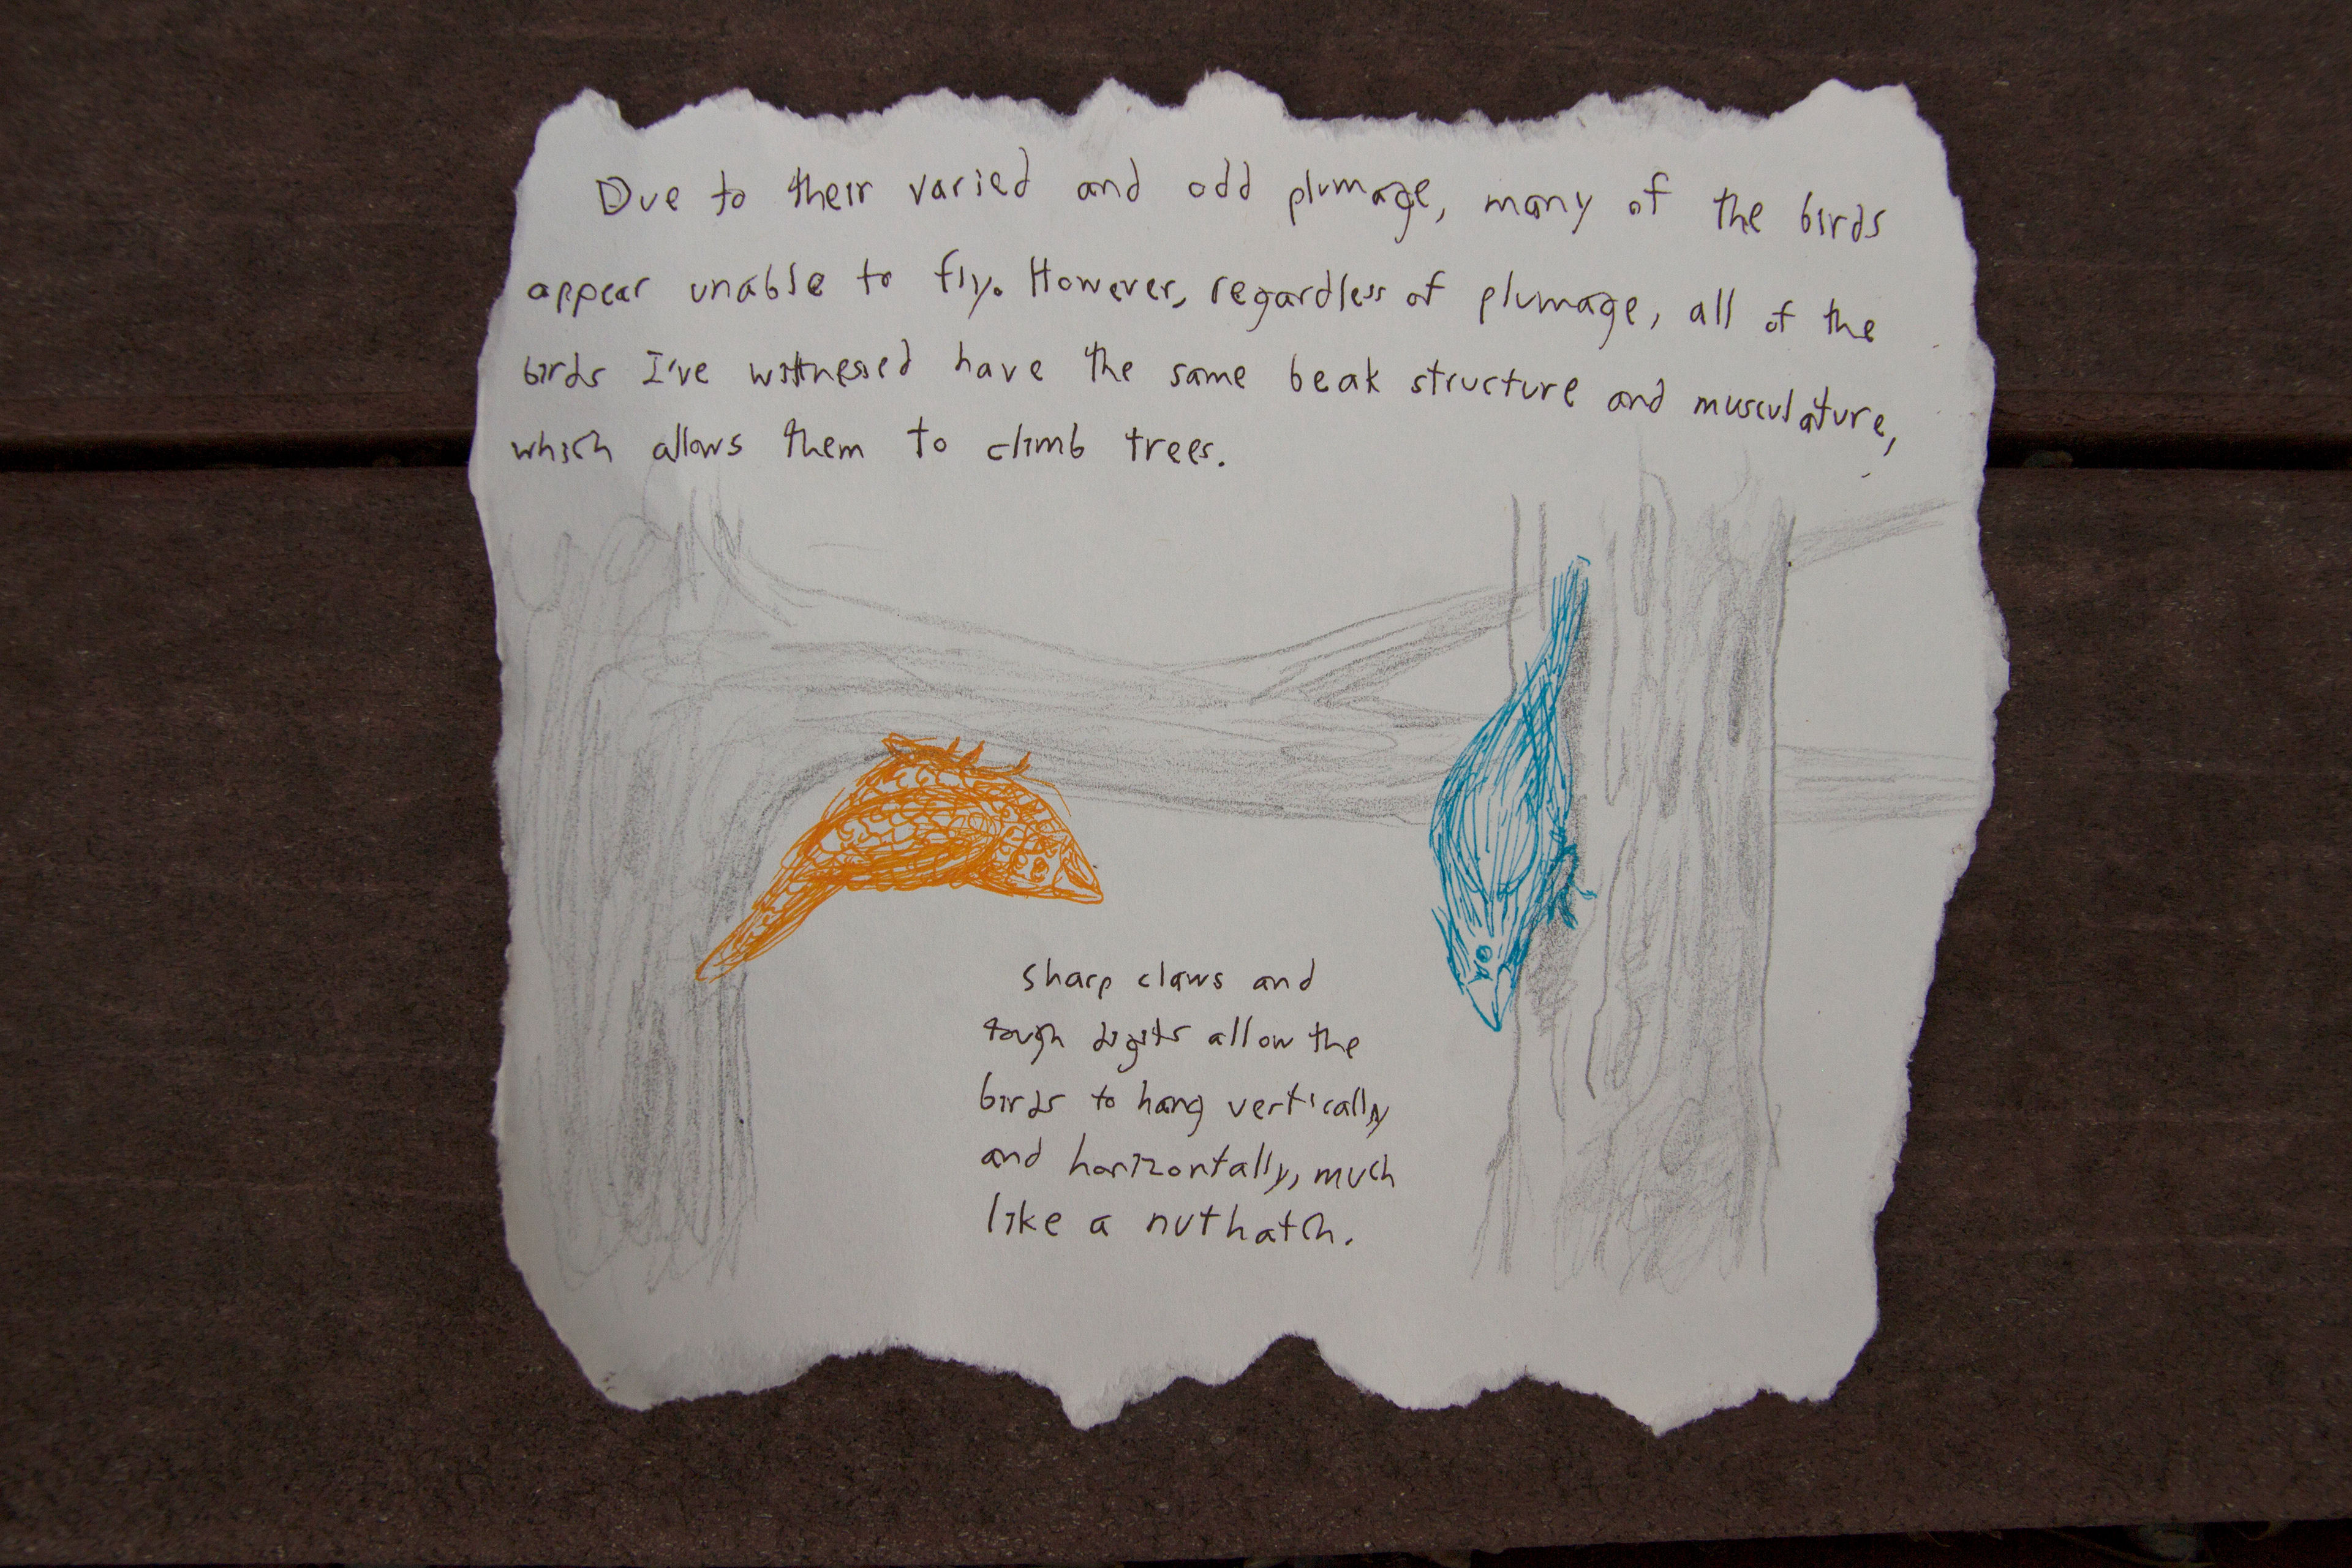 Due to their varied and odd plumage, many of the birds
appear unable to fly. However, regardless of plumage, all of the
birds I've witnessed have the same beak structure and musculature,
which allows them to climb trees.
Sharp claws and
tough digits allow the
birds to hang vertically
and horizontally, much
like a nuthatch.